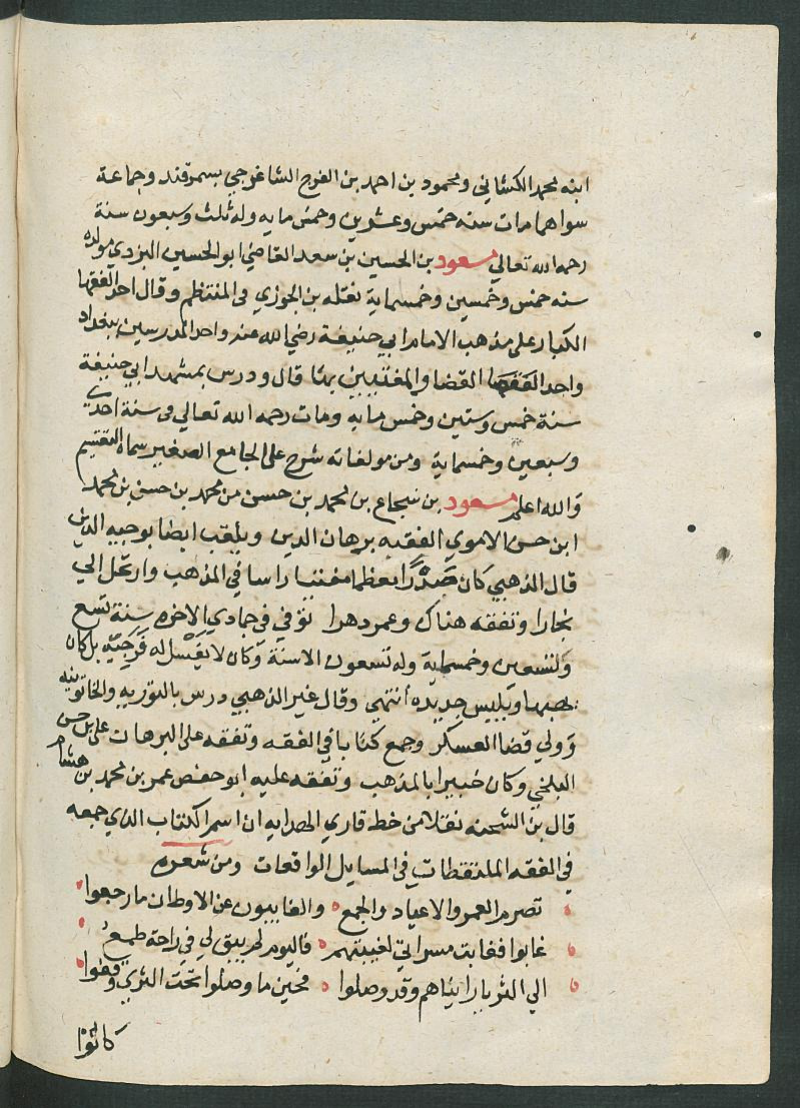 ابنه محمد الكشاني ومحمود بن احمد بن الفرج الشاغوجي بسمرقند وجماعة
سواهما مات سنه خمس وعشرين وخمس مايه وله ثلث وسبعون سنة
رحمه الله تعالي مسعود بن الحسين بن سعد القاضي ابو الحسين اليزدي مولده
سنه خمس وخمسين وخمسماية نقله بن الجوزي فى المنتظم وقال احد الفقها
الكبار على مذهب الامام ابي حنيفة رضي الله عنه واحد المدرسين ببغداد
واحد الفقها القضا والمفتيين بها قال ودرس بمشهد ابي حنيفة
سنة خمس وستين وخمس مايه ومات رحمه الله تعالي فى سنة احدي
وسبعين وخمسماية ومن مولفاته شرح على الجامع الصغير سماه التقسيم
والله اعلم مسعود بن شجاع بن محمد بن حسن من محمد بن حسن بن محمد
ابن حسن الاموي الفقيه برهان الدين ويلقب ايضا بوجيه الدين
قال الذهبي كان صدرًا معظما مفتنا راسا في المذهب وارتحل الي
بخارا وتفقه هناك وعمر دهرا توفي في جمادي الاخره سنة تسع
وتسعين وخمسماية وله تسعون الا سنة وكان لا يغسل له فرجيّه بل كان
يهبها ويلبس جديده انتهي وقال غير الذهبي درس بالنوريه والخاتونيه
وولي قضا العسكر وجمع كتابا في الفقه وتفقه على البرهان على بن حسن
البلخي وكان خبيرا بالمذهب وتفقه عليه ابو حفص عمر بن محمد بن هشام
قال بن الشحنه نقلا من خط قاري الهدايه ان اسم الكتاب الذي جمعه
في الفقه الملتقطات في المسايل الواقعات ومن شعره
تصرم العمر والاعياد والجمع والغايبون عن الاوطان ما رجعوا
غابوا فغابت مسراتي لغيبتهم فاليوم لم يبق لي في راحة طمع
الي الثريا رايناهم وقد وصلوا فحين ما وصلوا تحت الثري وقعوا
كانوا